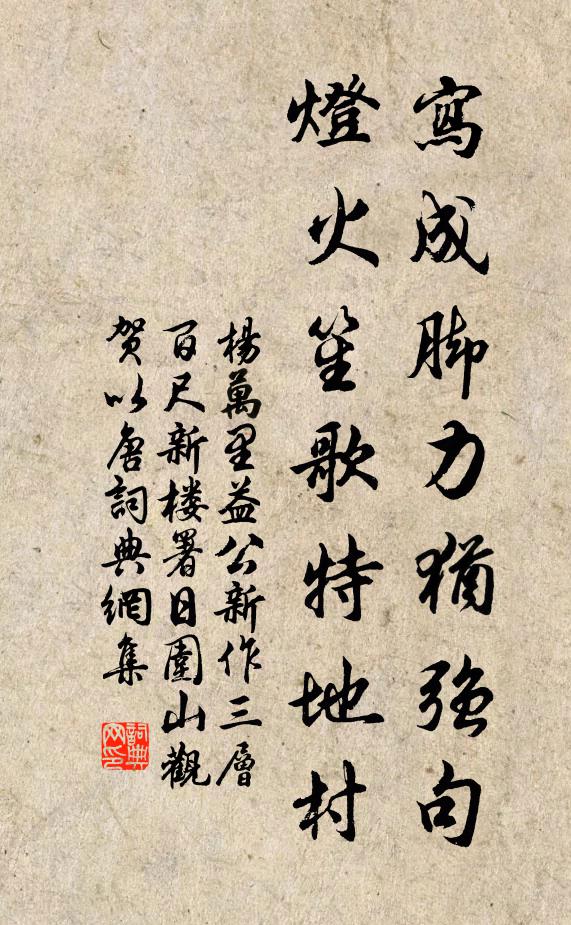 寫成脚力猶強句
燈火笙歌特地村
楊萬里益公新作三層
百尺新楼署日圍山觀
贺以唐詞典網集
詞典網印